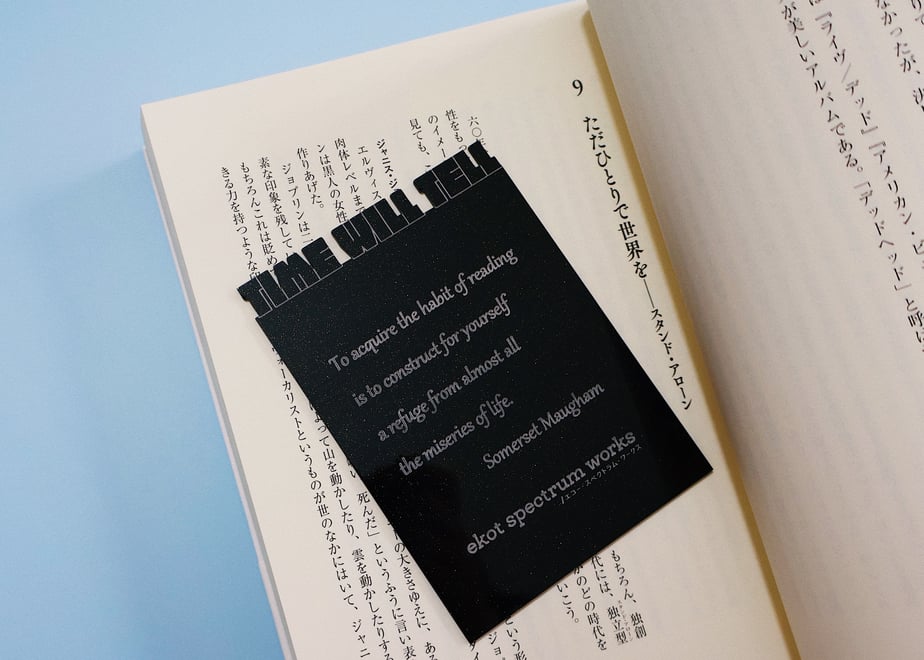 TIME WILL TELL
To acquire the habit of reading
is to construct for yourself
a refuge from almost all
the miseries of life.
Somerset Maugham
ekot spectrum works
/エコー・スペクトラム・ワークス
は『ライヴ/デッド』『アメリカン・ビ
が美しいアルバムである。「デッドヘッド」と呼
9
ただひとりで世界を――スタンド・アローン
もちろん、独創
代には、独立型
どの時代を
いこう。
六〇
性をも
のイメー
見ても、
ジャニス・ジ
エルヴィス
肉体レベルまで
ンは黒人の女性
作りあげた。
ジョプリンは二
素な印象を残して
もちろんこれは貶め
きる力を持つような
ォーカリストというものが世のなかにはいて、ジャニ
よって山を動かしたり、雲を動かしたりする
死んだ」というふうに言い表
の大きさゆえに、ある
という形